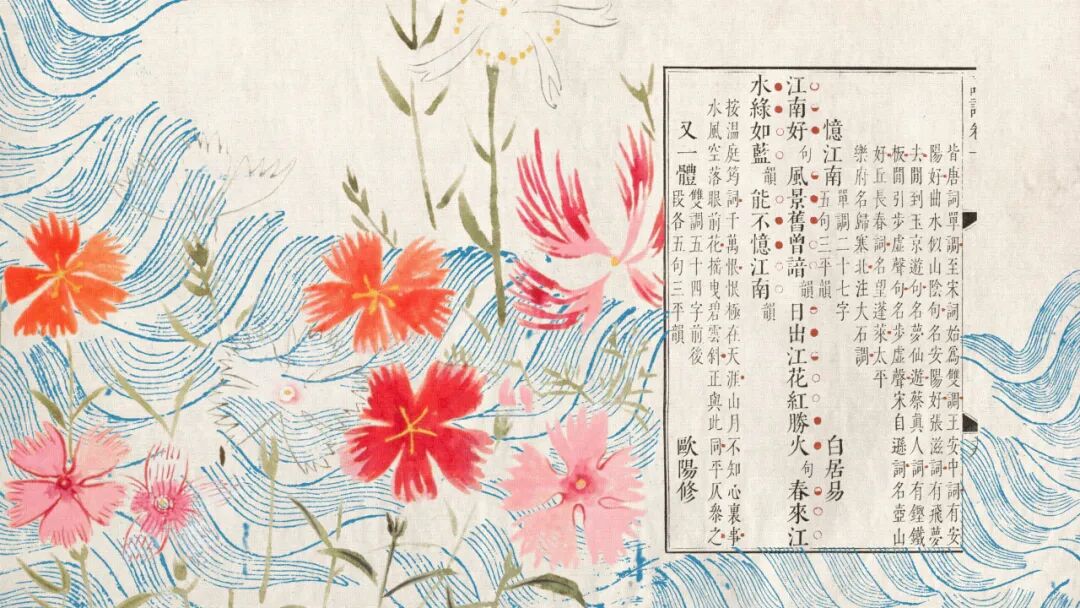 皆唐詞單調至宋詞始爲雙調王安中詞有安
陽好曲水似山陰句名安陽好張滋詞有飛夢
去閒到玉京遊句名夢仙遊蔡眞人詞有鏗鐵
板閒引步虛聲句名步虛聲宋自遜詞名壺山
好丘長春詞名望蓬萊太平
樂府名歸塞北注大石調
憶江南 單調二十七字五句三平韻 白居易
江南好句風景舊曾諳韻日出江花紅勝火句春來江
水綠如藍韻能不憶江南韻
按溫庭筠詞千萬恨恨極在天涯山月不知心裏事
水風空落眼前花搖曳碧雲斜正與此同平仄參之
又一體 雙調五十四字前後段各五句三平韻 歐陽修